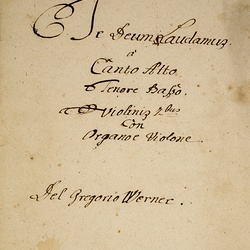 Te Deum Laudamus
a
Canto Alto
Tenore Basso.
Violinis 2bus
Con
Organo e Violone
Del Gregorio Werner.